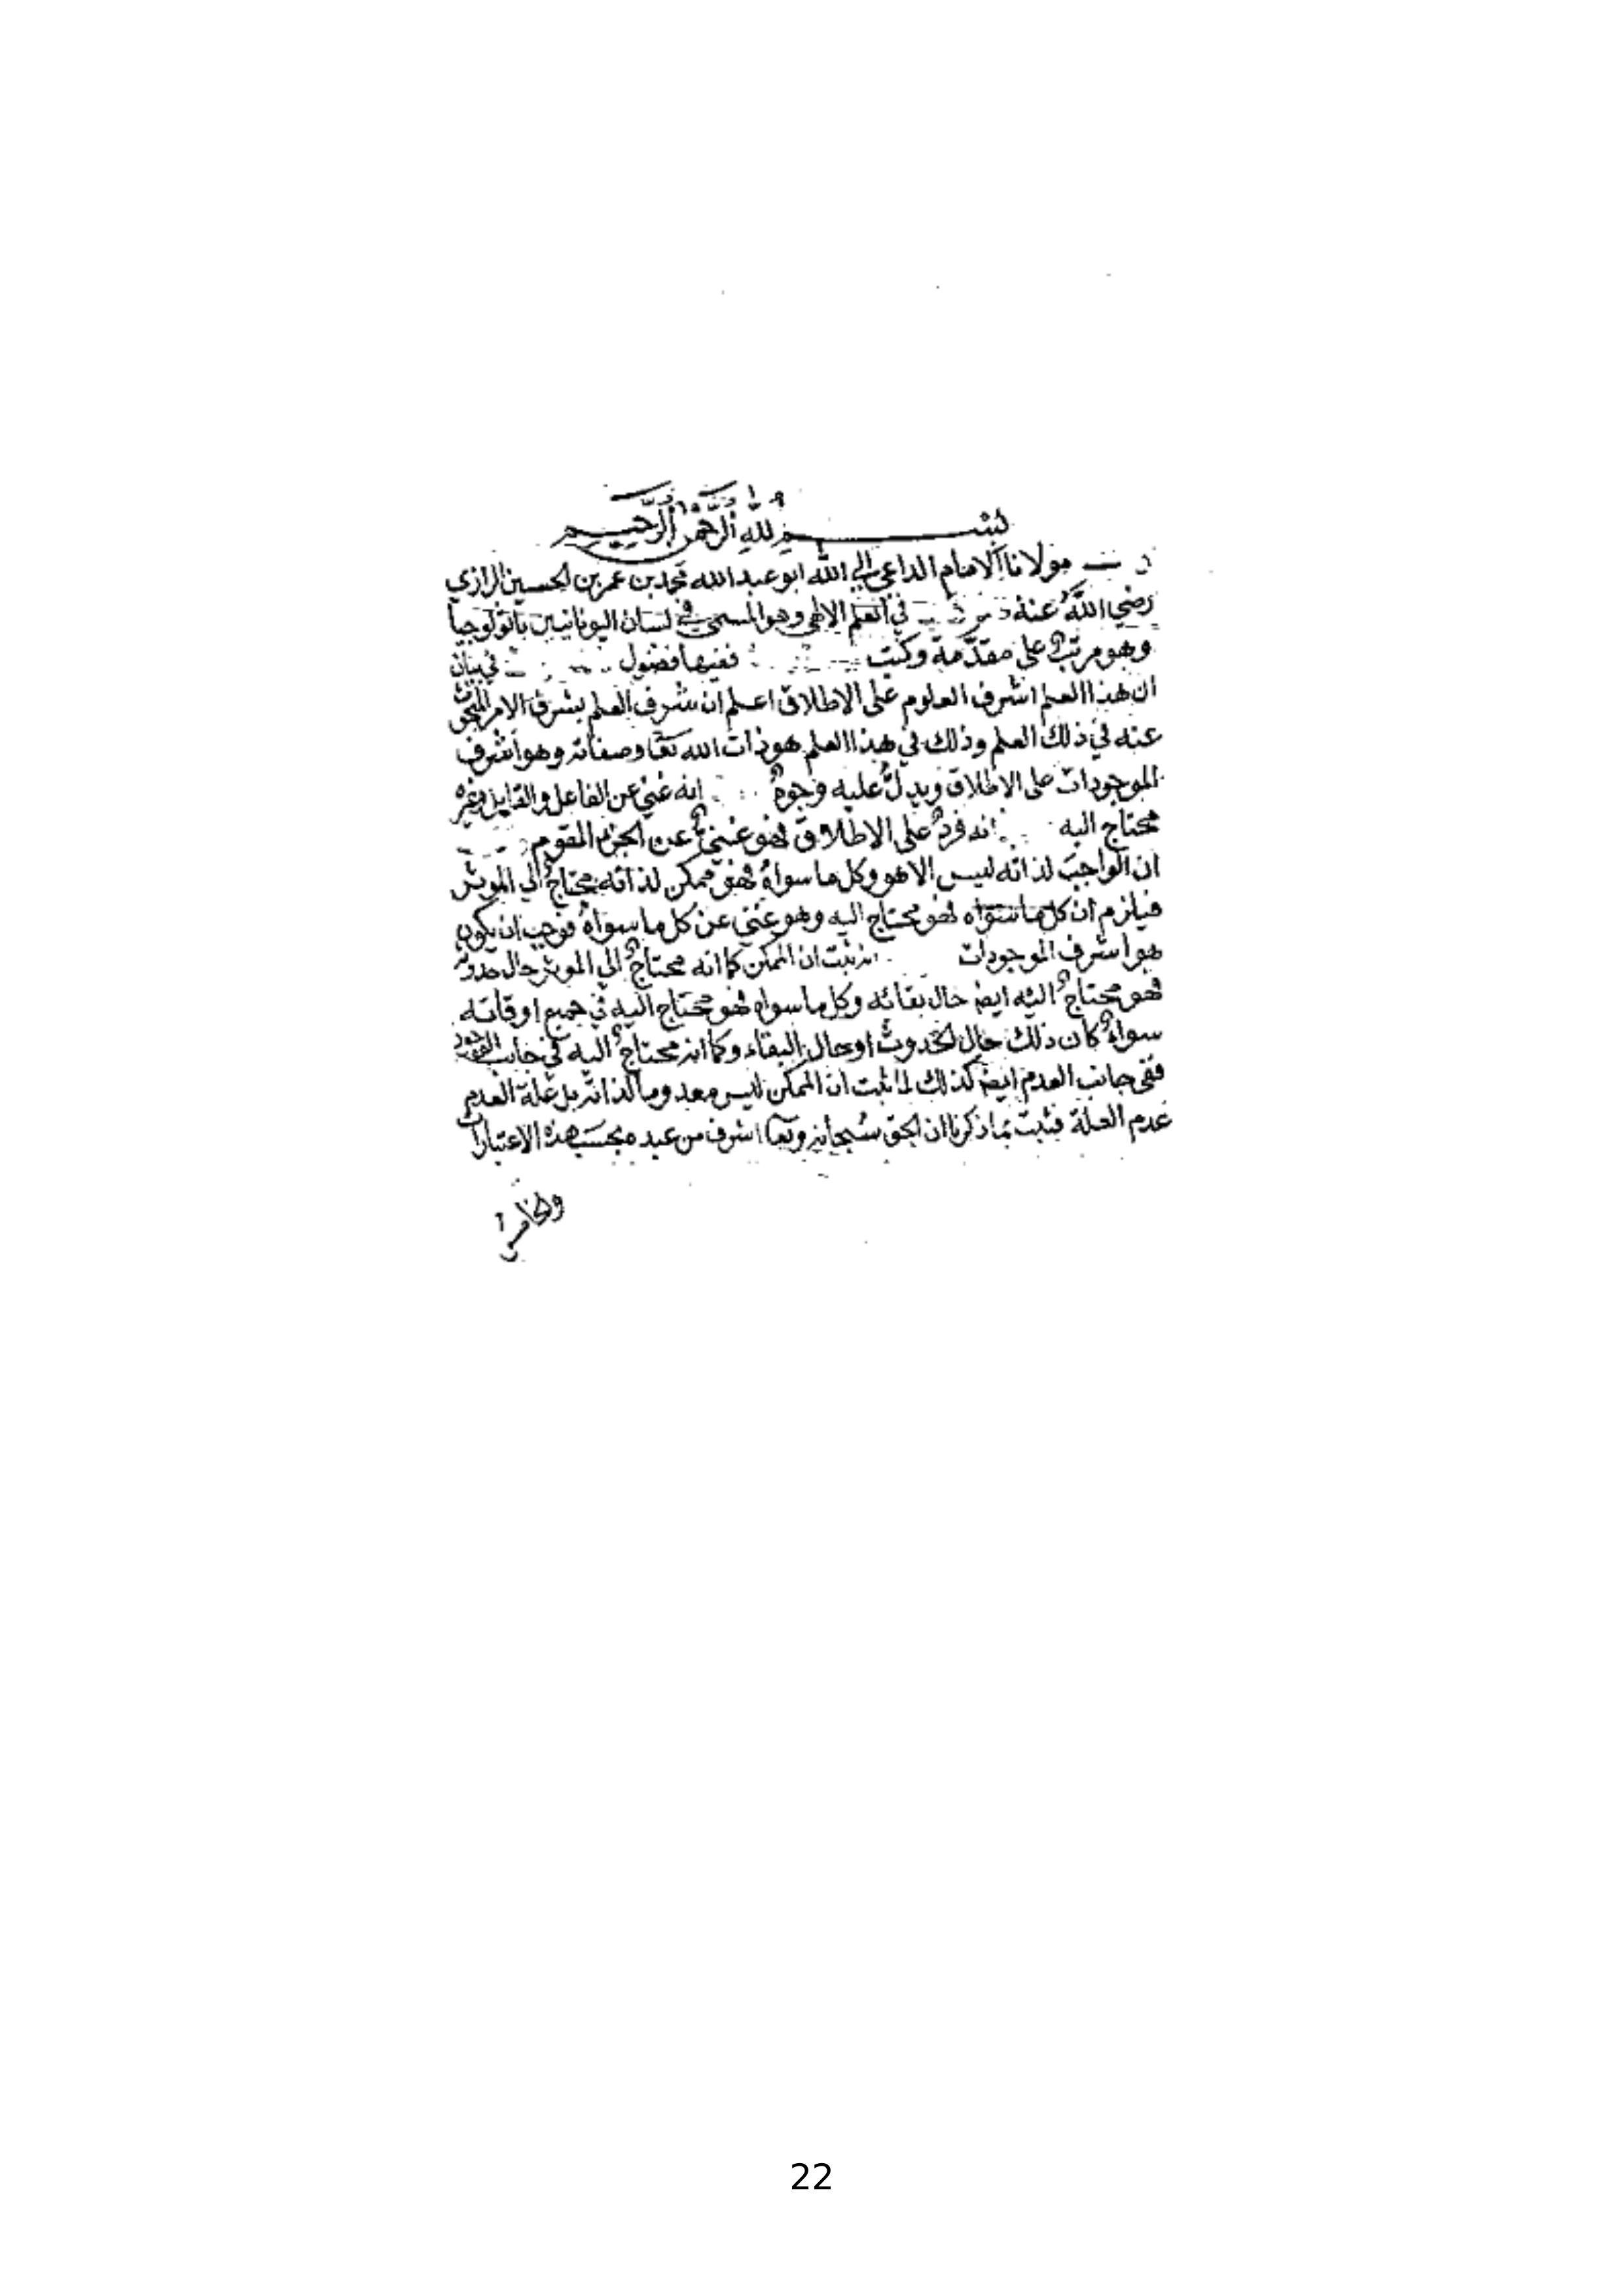 بسم الله الرحمن الرحيم
مولانا الامام الداعي الي الله ابو عبد الله محمد بن عمر بن الحسين الرازي
رضي الله عنه في العلم الالهي وهو المسمي في لسان اليونانيين باثولوجيا
وهو مرتب علي مقدمة وكتب ففيها فصول في بيان
ان هذا العلم اشرف العلوم على الاطلاق اعلم ان شرف العلم بشرف الامر المبحوث
عنه في ذلك العلم وذلك في هذا العلم هو ذات الله تعا وصفاته وهو اشرف
الموجودات على الاطلاق ويدل عليه وجوه انه غني عن الفاعل والقابل وغيره
محتاج اليه انه فرد على الاطلاق فهو غني عن الجزء المقوم
ان الواجب لذاته ليس الا هو وكل ما سواه فهو ممكن لذاته محتاج الي الموثر
فيلزم ان كل ما سواه فهو محتاج اليه وهو غني عن كل ما سواه فوجب ان يكون
هو اشرف الموجودات ثبت ان الممكن كما انه محتاج الي الموثر حال حدوثه
فهو محتاج اليه ايض حال بقائه وكل ما سواه فهو محتاج اليه في جميع اوقاته
سواء كان ذلك حال الحدوث او حال البقاء وكما انه محتاج اليه في جانب الوجود
ففي جانب العدم ايض كذلك لما ثبت ان الممكن ليس معدوما لذاته بل علة العدم
عدم العلة فثبت بما ذكرنا ان الحق سبحانه وتعا اشرف من عبده بحسب هذه الاعتبارات
والخامس
22